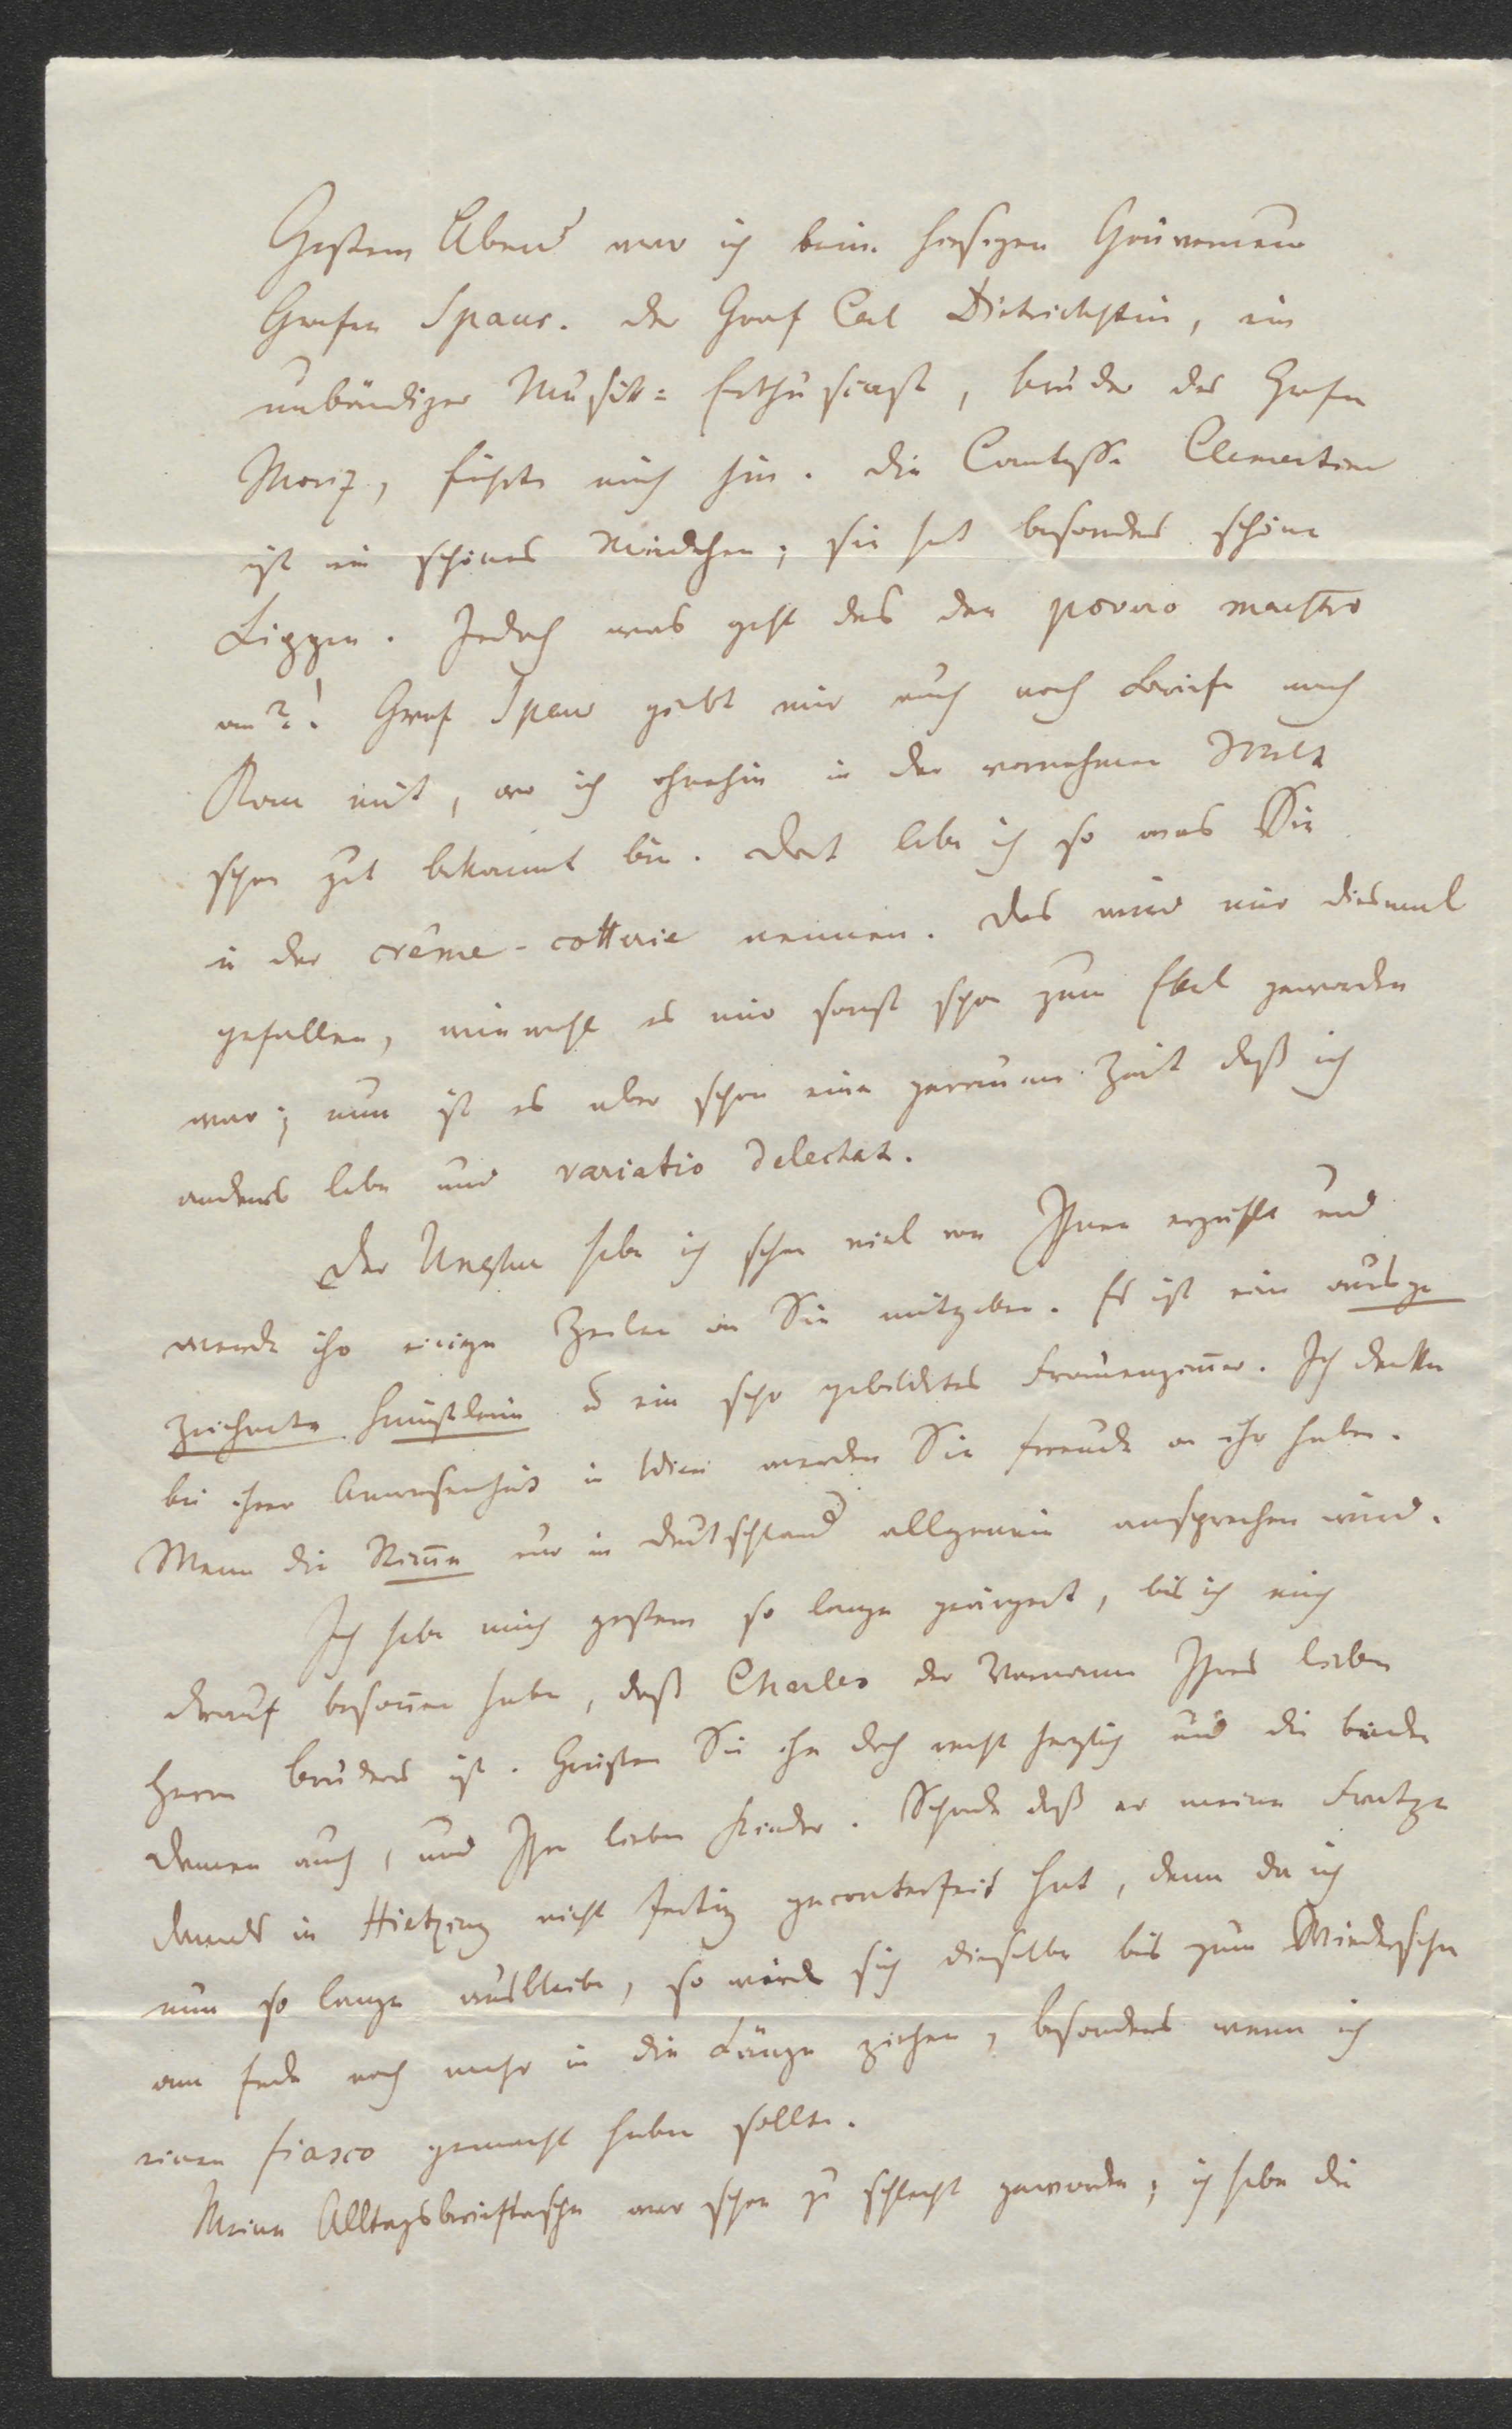 Gestern Abend war ich beim hiesigen Gouverneur
Grafen Spaur. Der Graf Carl Dietrichstein, ein
unbändiger Musik=Enthusiast, Bruder des Grafen
Moriz, führte mich hin. Die Comtesse Clementine
ist ein schönes Mädchen; sie hat besonders schöne
Lippen. Jedoch was geht das den povero maestro
an?! Graf Spaur giebt mir auch noch Briefe nach
Rom mit, wo ich ohnehin in der vornehmen Welt
schon gut bekannt bin. Dort lebe ich so was Sie
in der crême-cotterie nennen. Das wird mir diesmal
gefallen, wiewohl es mir sonst schon zum Ekel geworden
war; nun ist es aber schon eine geraume Zeit daß ich
anders lebe und variatio delectat.
Der Ungher habe ich schon viel von Ihnen erzählt und
werde ihr einige Zeilen an Sie mitgeben. Es ist eine ausge
zeichnete Künstlerin u ein sehr gebildetes Frauenzimmer. Ich denke
bei ihrer Anwesenheit in Wien werden Sie Freude an ihr haben.
Wenn die Stimme nur in Deutschland allgemein ansprechen wird.
Ich habe mich gestern so lange geärgert, bis ich mich
drauf besonnen habe, daß Charles der Vorname Ihres lieben
Herrn Bruders ist. Grüßen Sie ihn doch recht herzlich und die beiden
Damen auch, und Ihre lieben Kinder. Schade daß er meine Fratze
damals in Hietzing nicht fertig geconterfeit hat, denn da ich
nun so lange ausbleibe, so würde sich dieselbe bis zum Wiedersehn
am Ende noch mehr in die Länge ziehen, besonders wenn ich
einen fiasco gemacht haben sollte.
Meine Alltagsbrieftasche war schon zu schlecht geworden; ich habe die